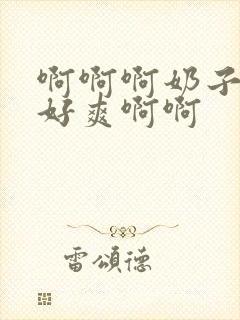 啊啊啊奶子
好爽啊啊
雷頌德